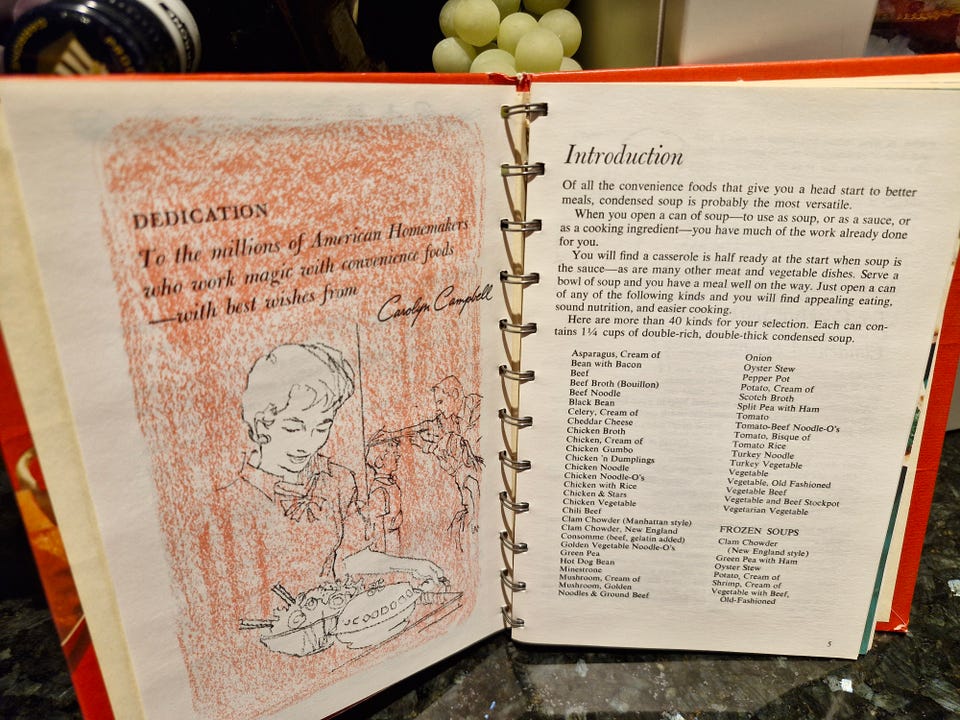 DEDICATION
To the millions of American Homemakers
who work magic with convenience foods
—with best wishes from
Carolyn Campbell
Introduction
Of all the convenience foods that give you a head start to better
meals, condensed soup is probably the most versatile.
When you open a can of soup—to use as soup, or as a sauce, or
as a cooking ingredient—you have much of the work already done
for you.
You will find a casserole is half ready at the start when soup is
the sauce—as are many other meat and vegetable dishes. Serve a
bowl of soup and you have a meal well on the way. Just open a can
of any of the following kinds and you will find appealing eating,
sound nutrition, and easier cooking.
Here are more than 40 kinds for your selection. Each can con-
tains 1¼ cups of double-rich, double-thick condensed soup.
Asparagus, Cream of
Bean with Bacon
Beef
Beef Broth (Bouillon)
Beef Noodle
Black Bean
Celery, Cream of
Cheddar Cheese
Chicken Broth
Chicken, Cream of
Chicken Gumbo
Chicken 'n Dumplings
Chicken Noodle
Chicken Noodle-O's
Chicken with Rice
Chicken & Stars
Chicken Vegetable
Chili Beef
Clam Chowder (Manhattan style)
Clam Chowder, New England
Consomme (beef, gelatin added)
Golden Vegetable Noodle-O's
Green Pea
Hot Dog Bean
Minestrone
Mushroom, Cream of
Mushroom, Golden
Noodles & Ground Beef
Onion
Oyster Stew
Pepper Pot
Potato, Cream of
Scotch Broth
Split Pea with Ham
Tomato
Tomato-Beef Noodle-O's
Tomato, Bisque of
Tomato Rice
Turkey Noodle
Turkey Vegetable
Vegetable
Vegetable, Old Fashioned
Vegetable Beef
Vegetable and Beef Stockpot
Vegetarian Vegetable
FROZEN SOUPS
Clam Chowder
(New England style)
Green Pea with Ham
Oyster Stew
Potato, Cream of
Shrimp, Cream of
Vegetable with Beef,
Old-Fashioned
5